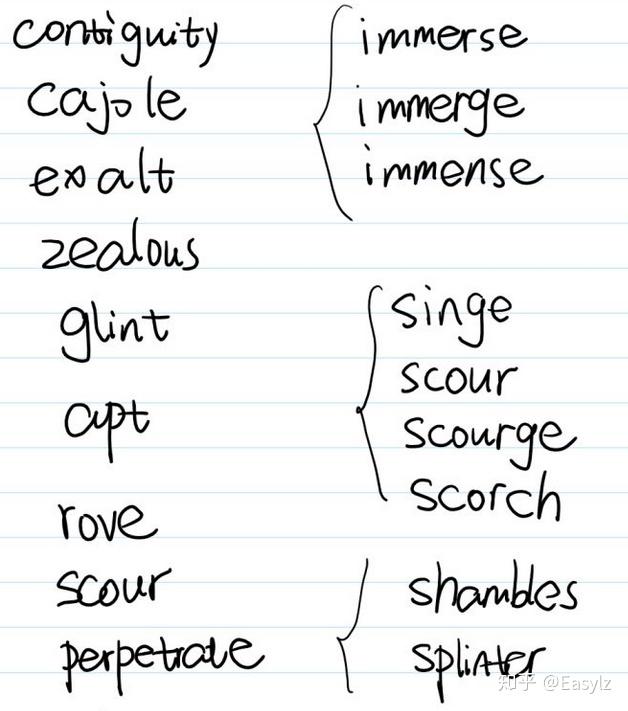 contiguity
cajole
exalt
zealous
glint
apt
rove
scour
perpetrate
immerse
immerge
immense
singe
scour
scourge
scorch
shambles
splinter
知乎 @Easylz